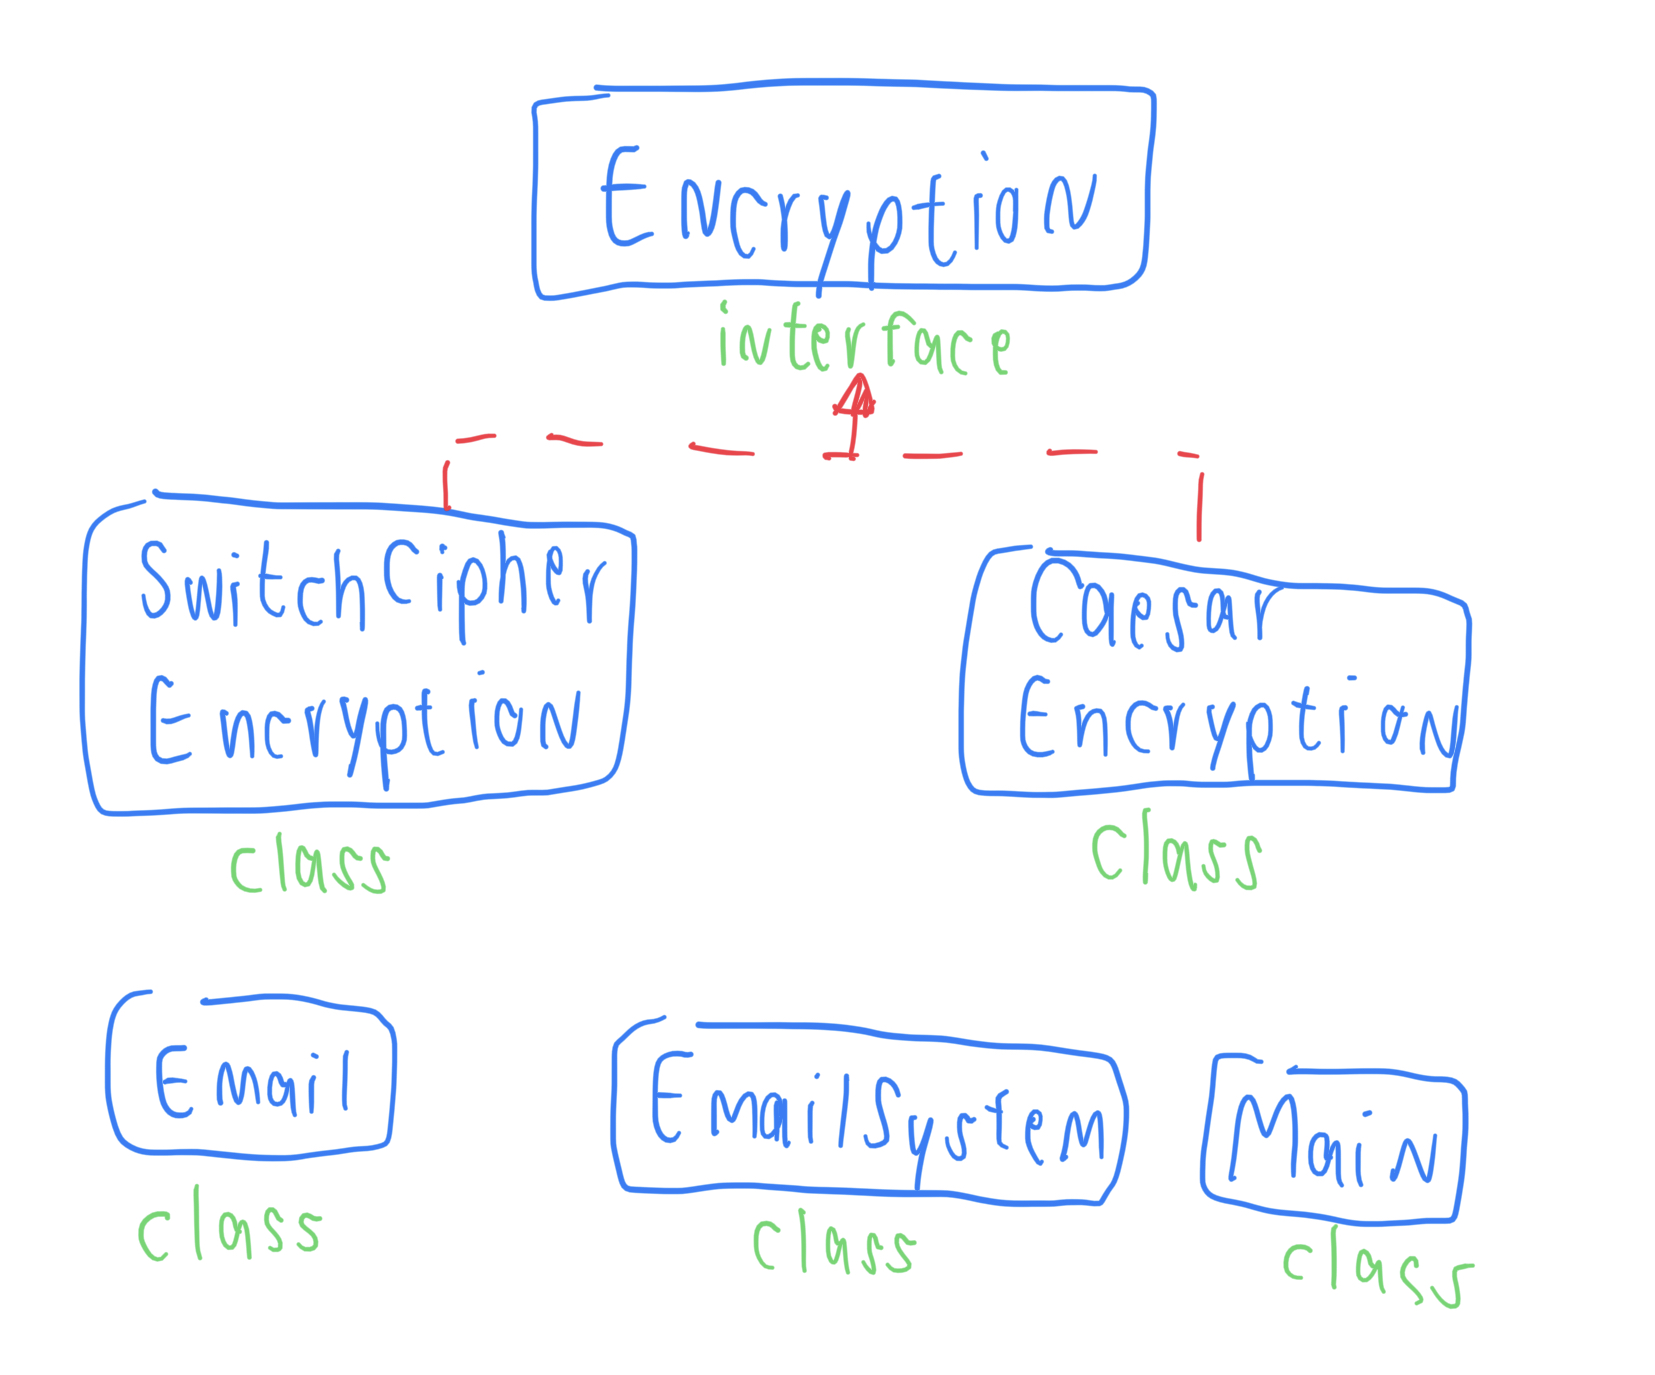 Encryption
interface
SwitchCipher
Encryption
class
Caesar
Encryption
class
Email
class
EmailSystem
class
Main
class